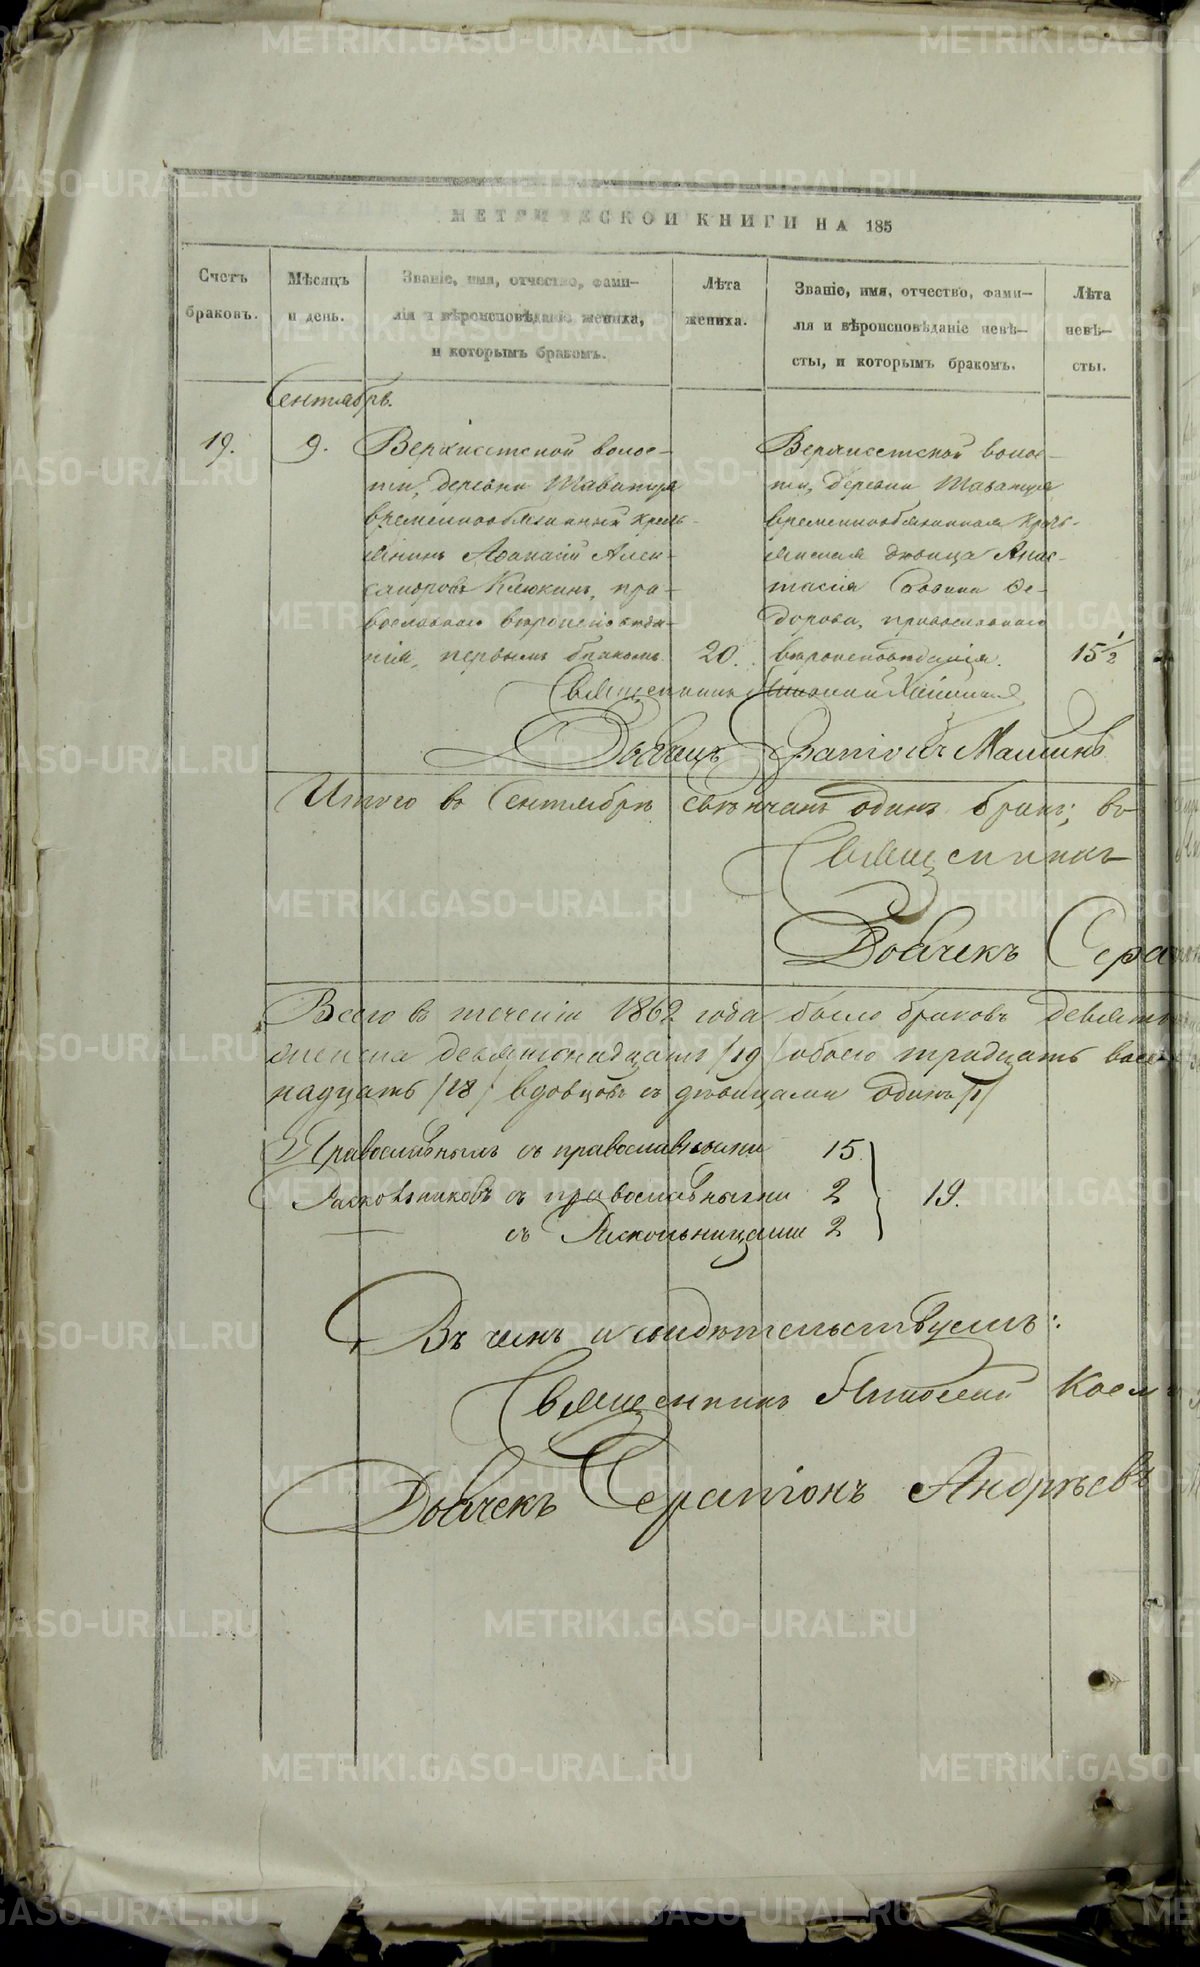 МЕТРИЧЕСКОЙ КНИГИ НА 185
Счетъ браковъ.
Мѣсяцъ и день.
Званіе, имя, отчество, фами-
лія и вѣроисповѣданіе жениха,
и которымъ бракомъ.
Лѣта жениха.
Званіе, имя, отчество, фами-
лія и вѣроисповѣданіе невѣ-
сты, и которымъ бракомъ.
Лѣта невѣ-
сты.
Сентябрь.
19.
9.
Верхисетской волос-
ти, деревни Таватуя
временнообязанный кресть-
янинъ Афанасій Алек-
сандровъ Клюкинъ, пра-
вославнаго вѣроисповѣда-
нія, первымъ бракомъ.
20.
Верхисетской волос-
ти, деревни Таватуя
временнообязанная кресть-
янская дѣвица Анас-
тасія Саввина Фе-
дорова, православнаго
вѣроисповѣданія.
15 1/2
Священникъ
Дьячекъ Серапіонъ
Итого въ Сентябрѣ свѣнчанъ одинъ бракъ; во
Священникъ
Дьячекъ Сера
Всего въ теченіи 1862 года было браковъ девят
девятнадцать /19/ обоего тридцать
надцать /18/ вдовцовъ съ дѣвицами одинъ /1/
Православныхъ съ православными 15
Раскольниковъ съ православными 2
19.
— съ Раскольницами 2
Въ чемъ и свидѣтельствуемъ:
Священникъ Косм
Дьячекъ Серапіонъ Андрѣевъ
METRIKI.GASO-URAL.RU